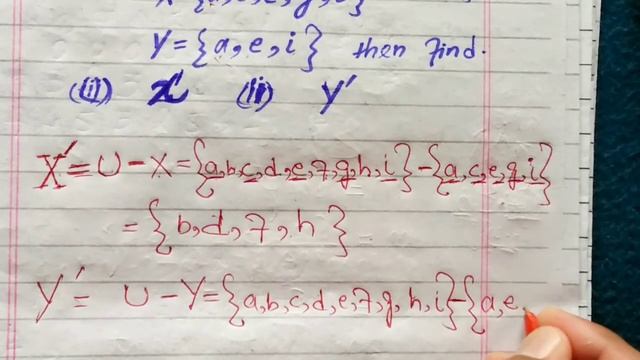 Y = {a, e, i} then find.
(i) X′ (ii) Y′
X′ = U - X = {a, b, c, d, e, f, g, h, i} - {a, c, e, g, i}
= {b, d, f, h}
Y′ = U - Y = {a, b, c, d, e, f, g, h, i} - {a, e,